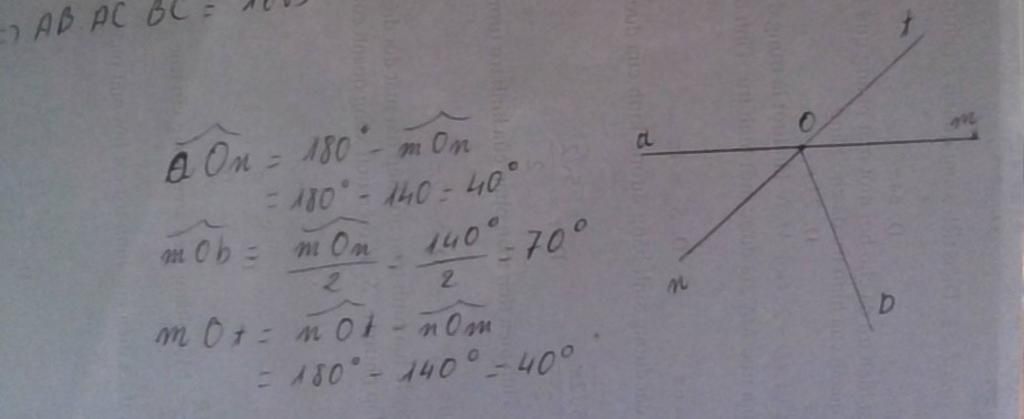 => AB AC BC =
aOn = 180° - mOn
= 180° - 140 = 40°
mOb = mOn/2 = 140°/2 = 70°
mOt = nOt - nOm
= 180° - 140° = 40°
t
O
a
m
n
b